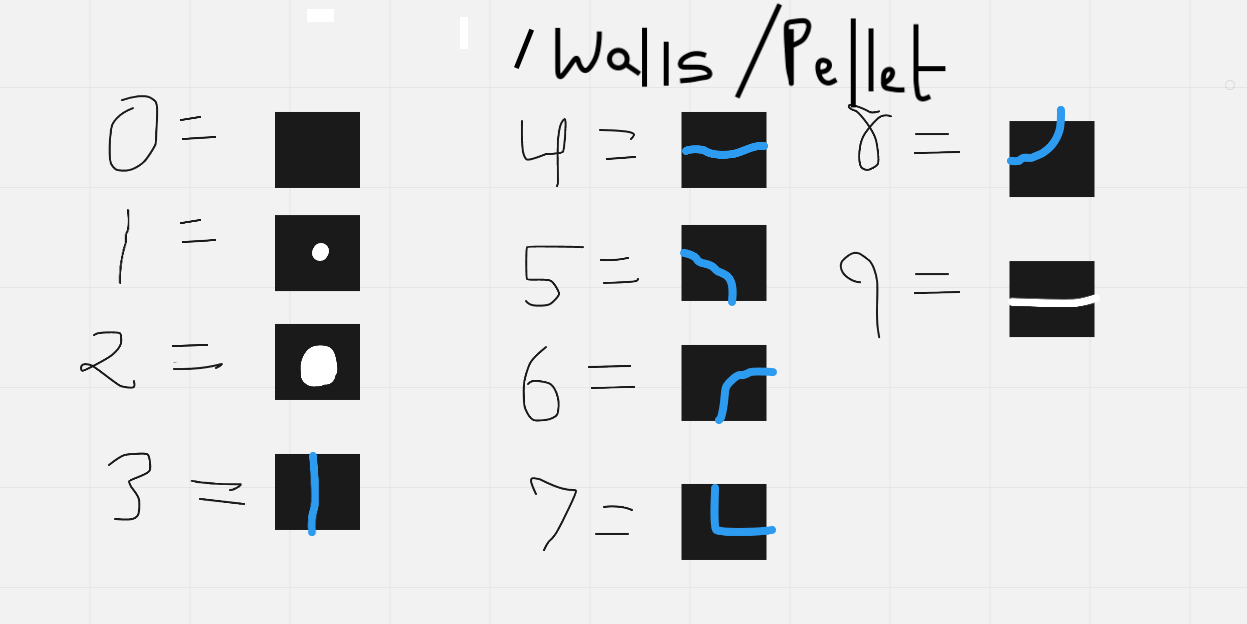 /Walls/Pellet
0 =
1 =
2 =
3 =
4 =
5 =
6 =
7 =
8 =
9 =